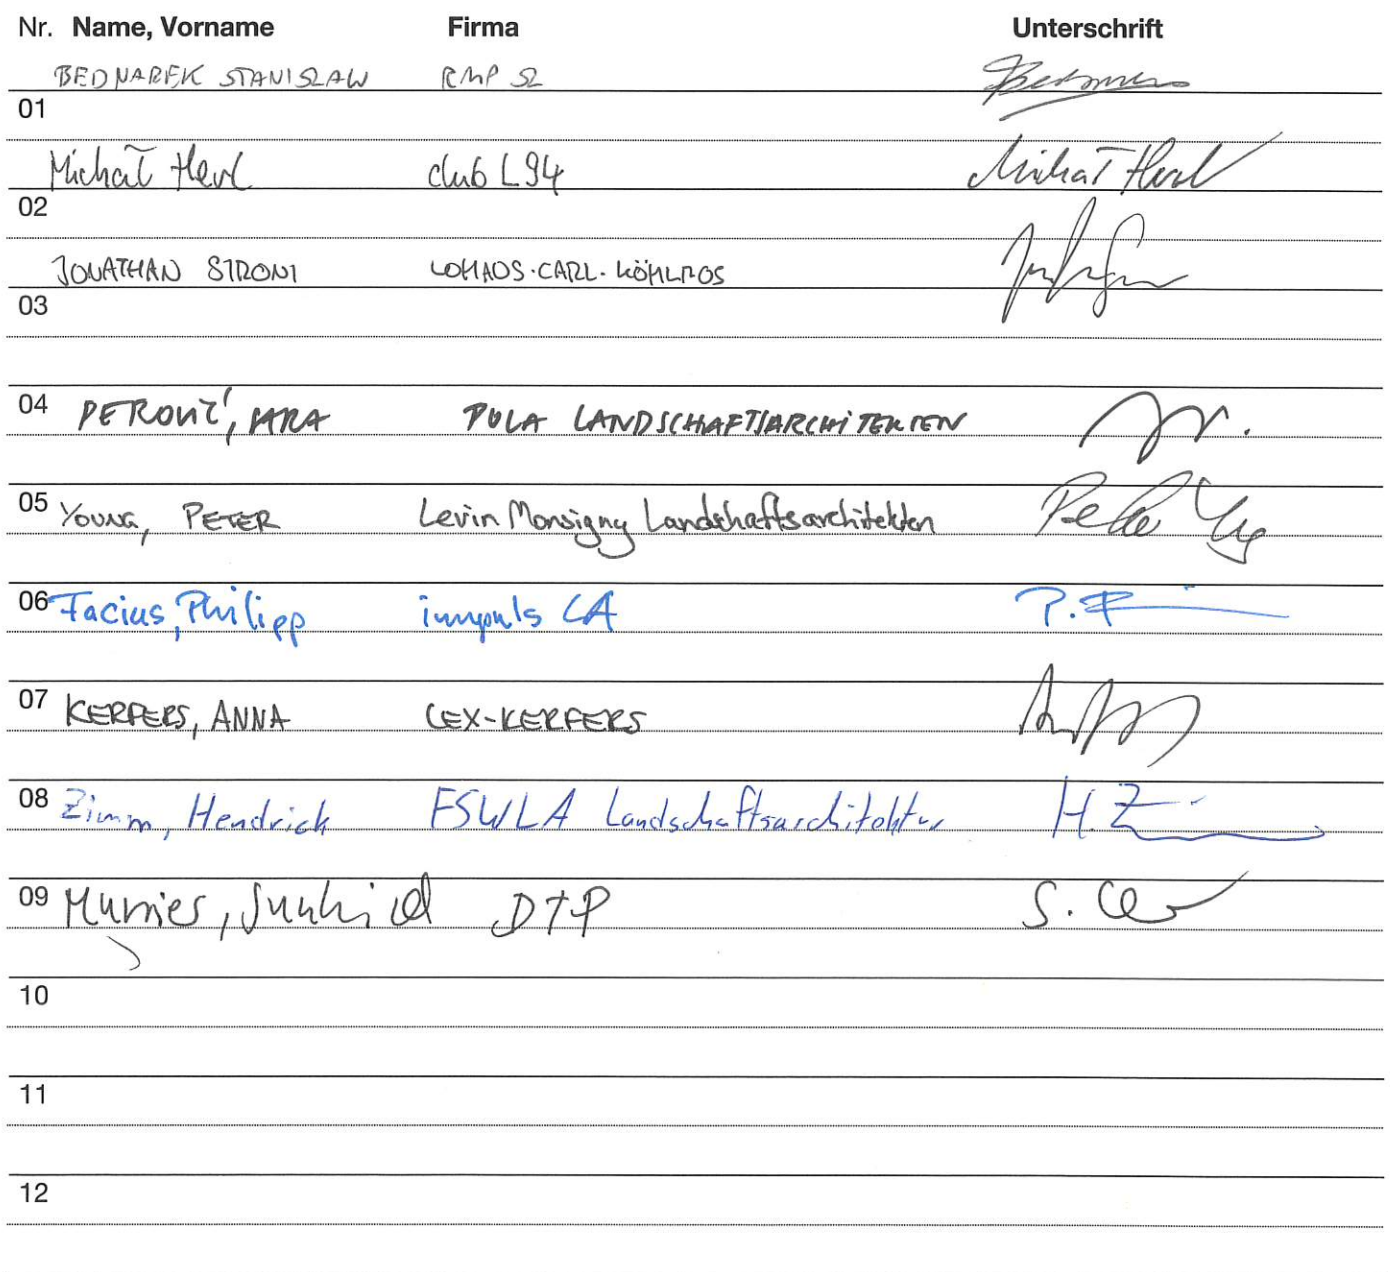 Nr. Name, Vorname Firma Unterschrift
BEDNAREK STANISLAW RMP SL
01
Michał Herl club L94 Michał Herl
02
JONATHAN STRONI LOHAUS·CARL·KÖHLMOS
03
04 PETROVIĆ, MARA POLA LANDSCHAFTSARCHITEKTEN
05 YOUNG, PETER Levin Monsigny Landschaftsarchitekten
06 Facius, Philipp impuls LA P. F
07 KERFERS, ANNA LEX-KERFERS
08 Zimm, Hendrick FSWLA Landschaftsarchitektur H. Z
09 DTP
10
11
12